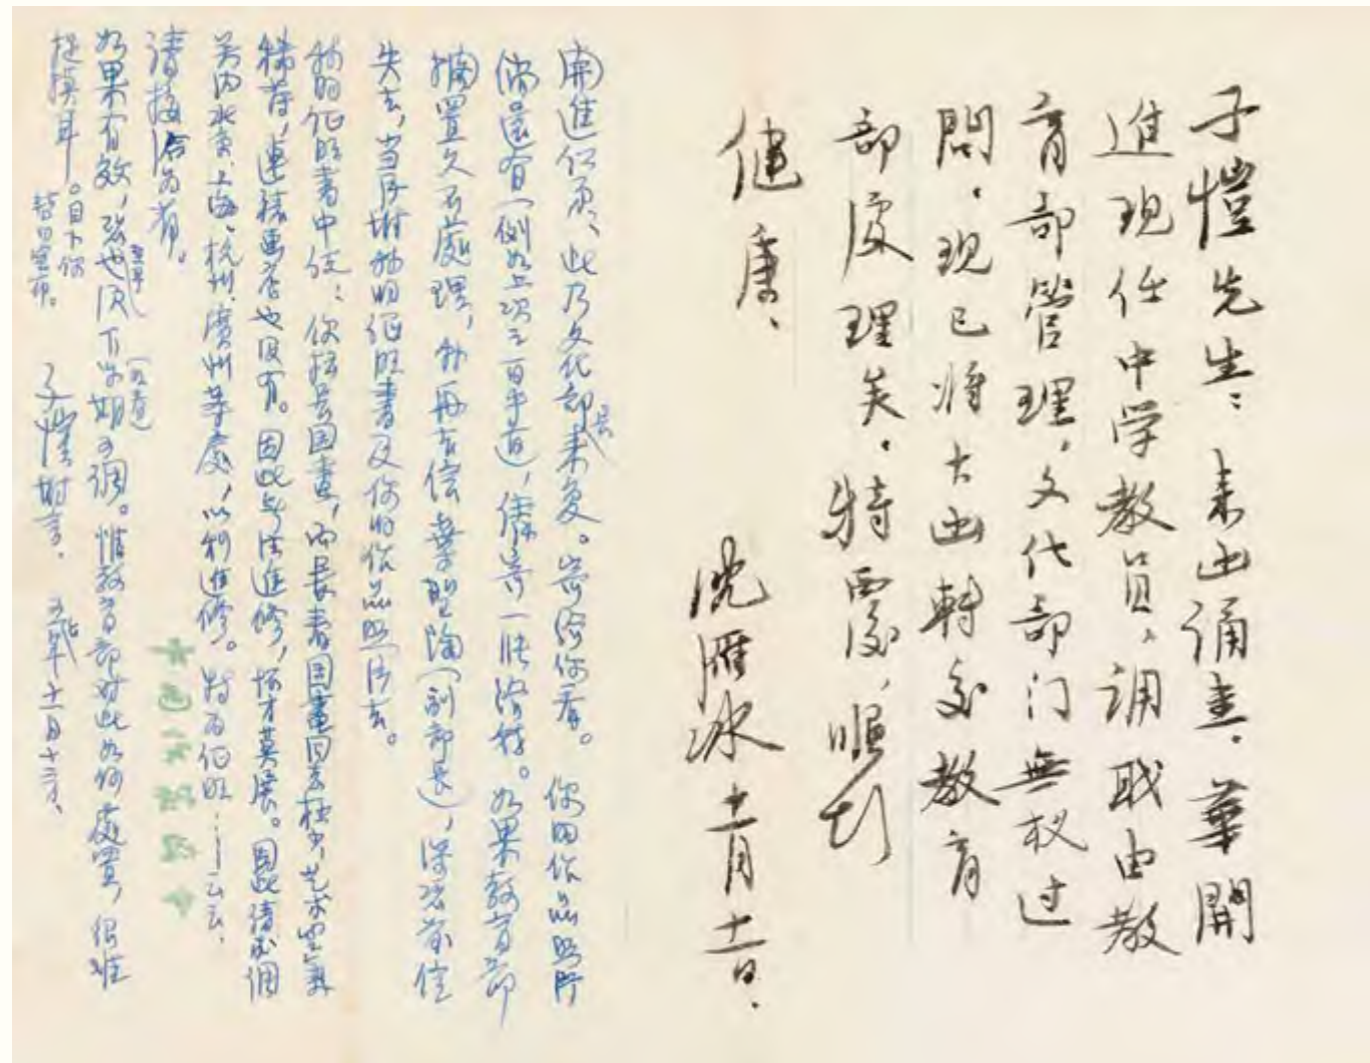 子愷先生：来函诵悉。華開
進现任中学教員，调职由教
育部管理，文化部门無权过
問。现已将大函转交教育
部處理矣。特覆，順頌
健康、
沈雁冰 十一月十一日、
開進仁弟、此乃文化部長来复。寄给你看。你的作品照片
尚還有（例如上次三百年前），请寄一张给我。如果教育部
擱置久不處理，我再去信葉聖陶（副部長），深恐前信
失去，当再附我的证明書及你的作品照片去。
我的证明書中说：你括長国畫，而長春国畫同志極少，艺术空氣
稀薄，連裱画店也没有。因此無法進修，怀才莫展。因此请求调
关内北京、上海、杭州、廣州等處，以利進修。特为证明……云云，
请接洽为荷。
如果有效，恐也须下学期可调。惟教育部对此如何處置，很难
捉摸耳。目下你
暂勿宣布。
子愷附言. 十一月十三日、